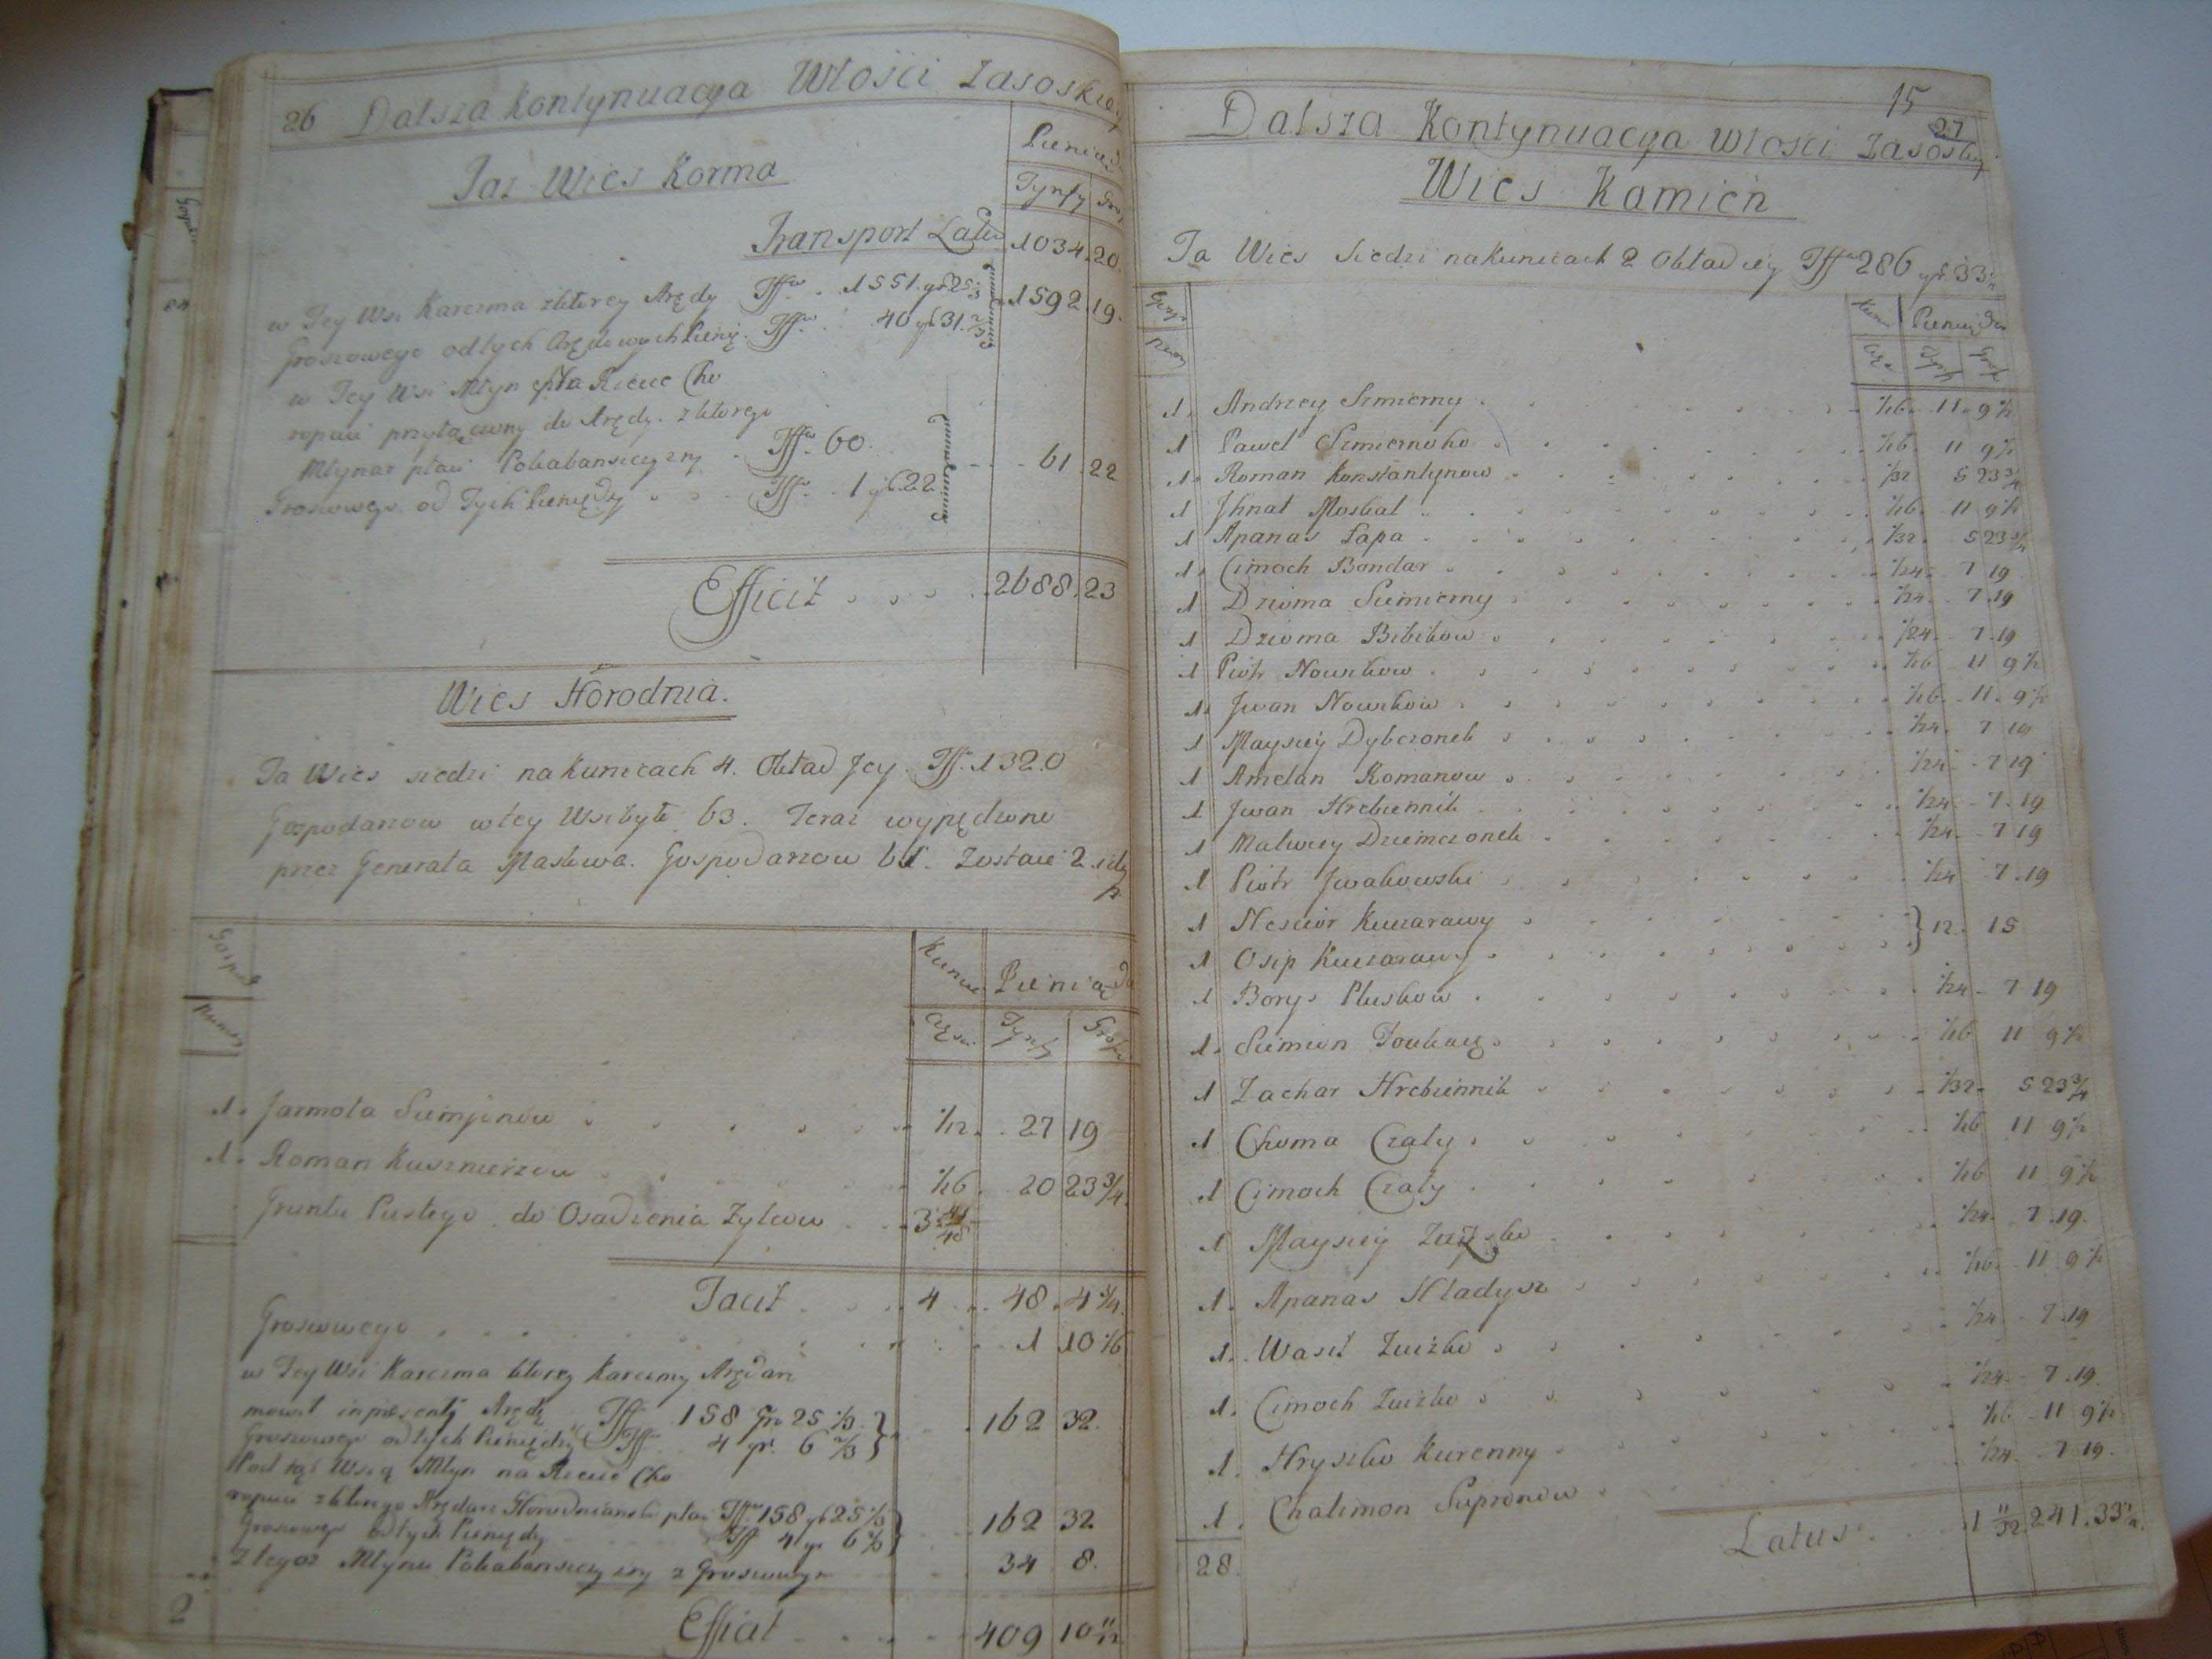 26 Dalsza Kontynuacya Włosci Zasoskiey
Taz Wies Korma
Pieniądz
Tynfy Gro
Transport Latus 1034. 20.
w Tey Wsi Karczma z ktorey Arędy Tffow . 1551. gr 25 1/3
1592. 19.
Groszowego od tych Arędowych Pienię. Tffow . 40 gr 31. 2/3
w Tey Wsi Młyn na Riece Cho
ropuci przyłączony do Arędy. z ktorego
Młynarz płaci Pokabansczyzny . Tffow 60.
61. 22
Groszowego od Tych Pieniędzy . . . Tffow . 1 gr 22
Efficit . . . . 2688. 23
Wies Horodnia.
Ta Wies siedzi na Kunicach 4. Obkład Jey Tff. 1320
Gospodarzow w tey Wsi było 63. Teraz wypędzono
przez Generała Masłowa. Gospodarzow 61. Zostaie 2.
Gospod Numer
Kunic Pieniądz
Częsci Tynfy Grosze
1. Jarmoła Siemjonow . . . . . 1/12. 27 19
1. Roman Kusznierzow . . . . 1/16. 20 23 3/4
Gruntu Pustego do Osadzenia Zylcow . . 3 41/48
Facit . . . . 4 . . 48. 4 3/4.
Groszowego . . . . . . . 1 10 1/6
w Tey Wsi Karczma ktorey Karczmy Arędarz
Arędę Tff. 158 Gr 25 1/3
162 32.
Groszowego od tych Pieniędzy Tff. 4 gr. 6 2/3
Pod tąż Wsią Młyn na Riece Cho
ropuci z ktorego Arędarz Horodnianski płaci Tffow 158 gr 25 1/3
162 32
Groszowego od tych Pieniędzy Tff 4 gr 6 2/3
Z tegoz Młynu Pokabansczyzny z Groszowym 34. 8.
2
Efficit . . . . . 409 10 11/12
15
27
Dalsza Kontynuacya Włosci Zasoskiey
Wies Kamień
Ta Wies Siedzi na Kunicach 2 Obkład iey Tffow 286 gr. 33
Gospo Numer
Kunic Pieniądze
Częs Tynfy Grosz
1. Andrzey Szmierny . . . 1/16. 11. 9 1/2
1 Paweł Szmiernoho . . . 1/16. 11 9 1/2
1. Roman Konstantynow . . . 1/32 5 23 3/4
1 Jhnat Moskal . . . 1/16. 11 9 1/2
1 Apanas Łapa . . . 1/32. 5 23 3/4
1. Cimoch Bondar . . . 1/24. 7 19
1 Dzioma Siemierny . . . 1/24. 7. 19
1 Dzioma Bibikow . . . 1/24. 7. 19
1 Piotr Nowikow . . . 1/16 11 9 1/2
1. Jwan Nowikow . . . 1/16. 11. 9 1/2
1 Maysiey Dybczonek . . . 1/24. 7 19
1 Amelan Romanow . . . 1/24. 7 19
1 Jwan Hrebiennik . . . 1/24. 7. 19
1 Matwiey Dziemczonek . . . 1/24. 7 19
1 Piotr Jwakowski . . . 1/24 7. 19
1 Nesciór Kuczarawy . . .
} 12. 15
1 Osip Kuczarawy . . .
1 Borys Pluskow . . . 1/24. 7 19
1. Siemion Toukacz . . . 1/16 11 9 1/2
1 Zachar Hrebiennik . . . 1/32. 5 23 3/4
1 Choma Czały . . . 1/16 11 9 1/2
1 Cimoch Czały . . . 1/16 11 9 1/2
1 Maysiey . . . 1/24. 7. 19.
1. Apanas Hładysz . . . 1/16. 11. 9 1/2
1. Wasil Zuizko . . . 1/24 7. 19
1. Cimoch Zuizko . . . 1/24. 7. 19.
1. Hryszko Kurenny . . . 1/16 11 9 1/2
1. Chalimon Supronow . . . 1/24. 7 19.
28.
Latus . . . 1 11/32. 241. 33